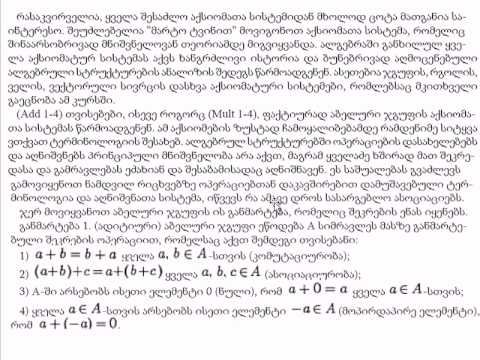 რასაკვირველია, ყველა შესაძლო აქსიომათა სისტემიდან მხოლოდ ცოტა მათგანია სა-
ინტერესო. შეუძლებელია "მარტო ტვინით" მოვიგონოთ აქსიომათა სისტემა, რომელიც
შინაარსობრივად მნიშვნელოვან თეორიამდე მიგვიყვანდა. ალგებრაში განხილულ ყვე-
ლა აქსიომატურ სისტემას აქვს ხანგრძლივი ისტორია და ბუნებრივად აღმოცენებული
ალგებრული სტრუქტურების ანალიზის შედეგს წარმოადგენენ. ასეთებია ჯგუფის, რგოლის,
ველის, ვექტორული სივრცის დასხვა აქსიომატური სისტემები, რომლებსაც მკითხველი
გაეცნობა ამ კურსში.
(Add 1-4) თვისებები, ისევე როგორც (Mult 1-4), ფაქტიურად აბელური ჯგუფის აქსიომა-
თა სისტემას წარმოადგენენ. ამ აქსიომების ზუსტად ჩამოყალიბებამდე რამდენიმე სიტყვა
ვთქვათ ტერმინოლოგიის შესახებ. ალგებრულ სტრუქტურებში ოპერაციების დასახელებებს
და აღნიშვნებს პრინციპული მნიშვნელობა არა აქვთ, მაგრამ ყველაზე ხშირად მათ შეკრე-
ბასა და გამრავლებას ეძახიან და შესაბამისადაც აღნიშნავენ. ეს საშუალებას გვაძლევს
გამოვიყენოთ ნამდვილ რიცხვებზე ოპერაციებთან დაკავშირებით დამუშავებული ტერ-
მინოლოგია და აღნიშვნათა სისტემა, იწვევს რა ამავე დროს სასარგებლო ასოციაციებს.
ჯერ მოვიყვანოთ აბელური ჯგუფის ის განმარტება, რომელიც შეკრების ენას იყენებს.
განმარტება 1. (ადიტიური) აბელური ჯგუფი ეწოდება A სიმრავლეს მასზე განმარტე-
ბული შეკრების ოპერაციით, რომელსაც აქვთ შემდეგი თვისებანი:
1) a + b = b + a ყველა a, b ∈ A-სთვის (კომუტაციურობა);
2) (a+b)+c = a+(b+c) ყველა a, b, c ∈ A (ასოციაციურობა);
3) A-ში არსებობს ისეთი ელემენტი 0 (ნული), რომ a + 0 = a ყველა a ∈ A-სთვის;
4) ყველა a ∈ A-სთვის არსებობს ისეთი ელემენტი −a ∈ A (მოპირდაპირე ელემენტი),
რომ a + (−a) = 0.